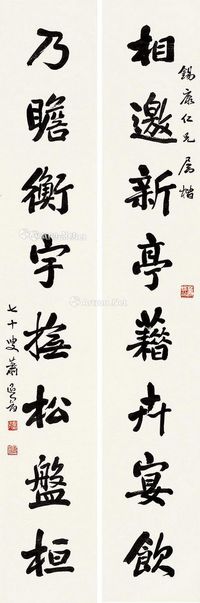 錫康仁兄属楷
相邀新亭藉卉宴飲
乃瞻衡宇撫松盤桓
七十叟蕭